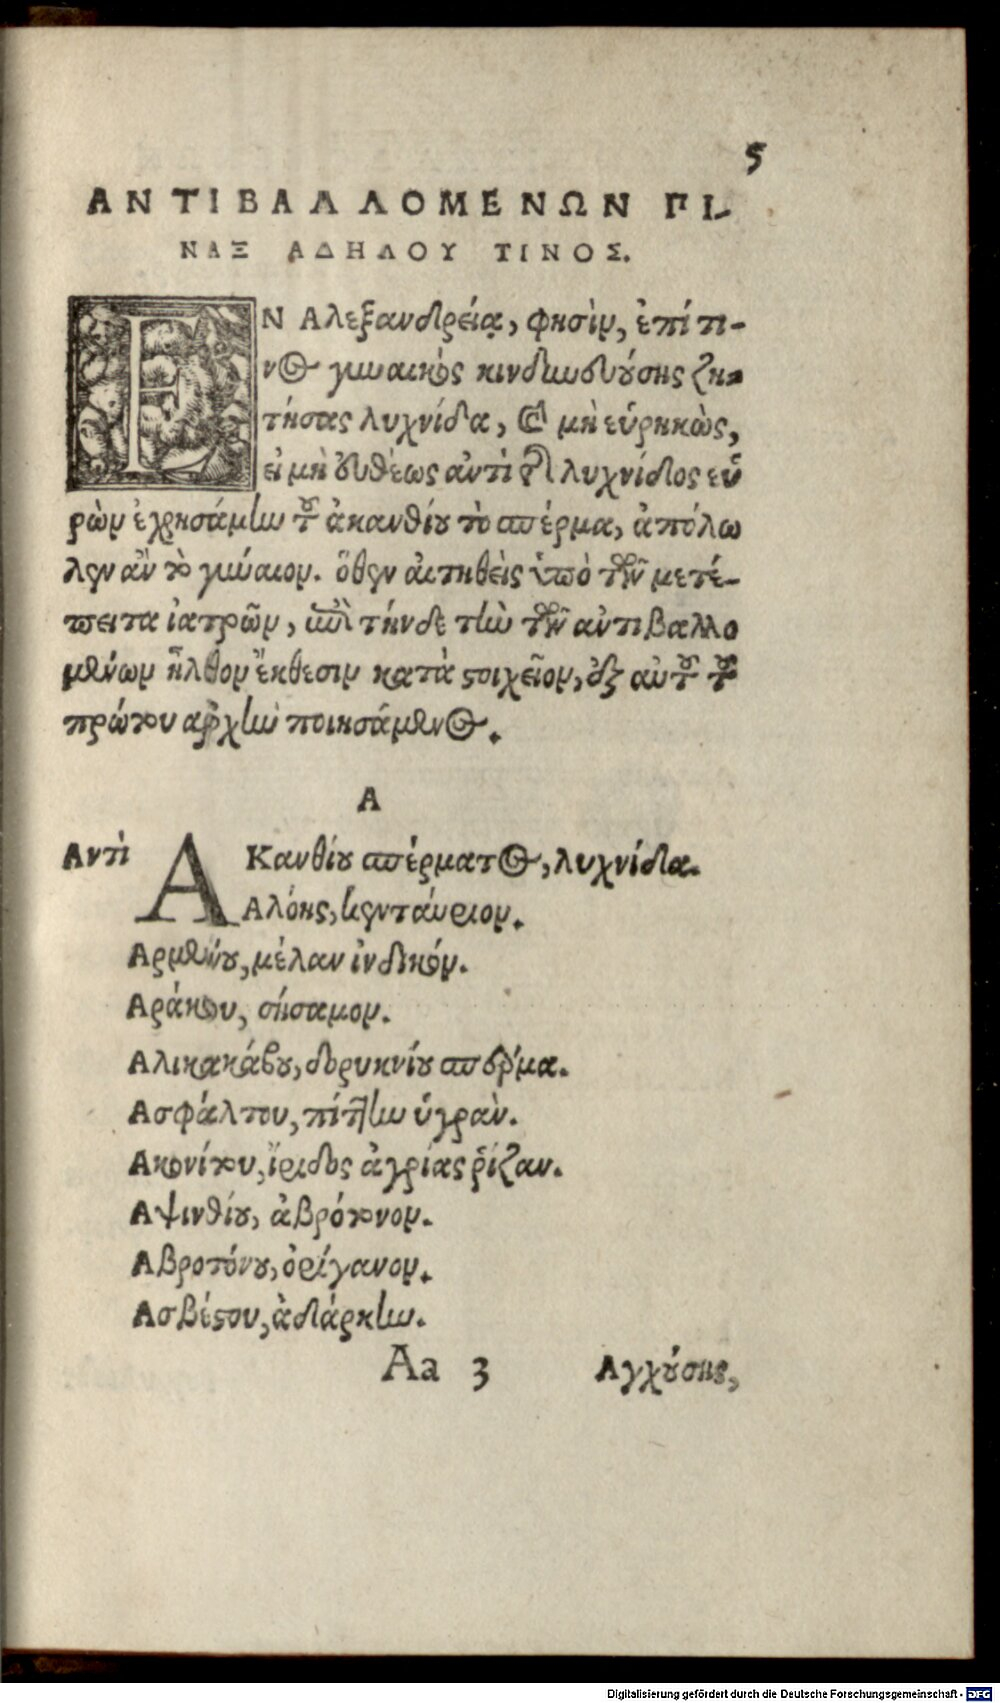 5
ΑΝΤΙΒΑΛΛΟΜΕΝΩΝ ΠΙ-
ΝΑΞ ΑΔΗΛΟΥ ΤΙΝΟΣ.
ΕΝ Αλεξανδρείᾳ, φησὶν, ἐπί τι-
νος γυναικὸς κινδυνευούσης ζη-
τήσας λυχνίδα, καὶ μὴ εὑρηκὼς,
εἰ μὴ εὐθέως ἀντὶ τῆς λυχνίδος εὑ
ρὼν ἐχρησάμην τοῦ ἀκανθίου τὸ σπέρμα, ἀπόλω
λεν ἂν τὸ γύναιον. ὅθεν αἰτηθεὶς ὑπὸ τῶν μετέ-
πειτα ἰατρῶν, ἐπὶ τήνδε τὴν τῶν ἀντιβαλλο
μένων ἦλθον ἔκθεσιν κατὰ στοιχεῖον, ἐξ αὐτοῦ τοῦ
πρώτου ἀρχὴν ποιησάμενος.
Α
Αντὶ ΑΚανθίου σπέρματος, λυχνίδα.
Αλόης, κενταύριον.
Αρμενίου, μέλαν ἰνδικόν.
Αράκου, σήσαμον.
Αλικακάβου, δορυκνίου σπέρμα.
Ασφάλτου, πίτ]ην ὑγράν.
Ακονίτου, ἴριδος ἀγρίας ῥίζαν.
Αψινθίου, ἀβρότονον.
Αβροτόνου, ὀρίγανον.
Ασβέστου, ἀδιάρκην.
Aa 3 Αγχούσης,
Digitalisierung gefördert durch die Deutsche Forschungsgemeinschaft - DFG